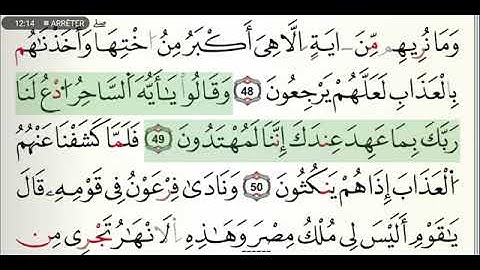 12:14 ARRÊTER
وَمَا نُرِيهِم مِّنَ ايَةٍ اِلَّا هِىَ أَكْبَرُ مِنُ اخْتِهَا وَأَخَذْنَٰهُم
بِالْعَذَابِ لَعَلَّهُمْ يَرْجِعُونَ 48 وَقَالُواْ يَٰأَيُّهَ اَلسَّاحِرُ اُدْعُ لَنَا
رَبَّكَ بِمَا عَهِدَ عِندَكَ إِنَّنَا لَمُهْتَدُونَ 49 فَلَمَّا كَشَفْنَا عَنْهُمُ
اُلْعَذَابَ إِذَا هُمْ يَنكُثُونَ 50 وَنَادَىٰ فِرْعَوْنُ فِى قَوْمِهِۦ قَالَ
يَٰقَوْمِ أَلَيْسَ لِى مُلْكُ مِصْرَ وَهَٰذِهِ اِلَانْهَٰرُ تَجْرِى مِن